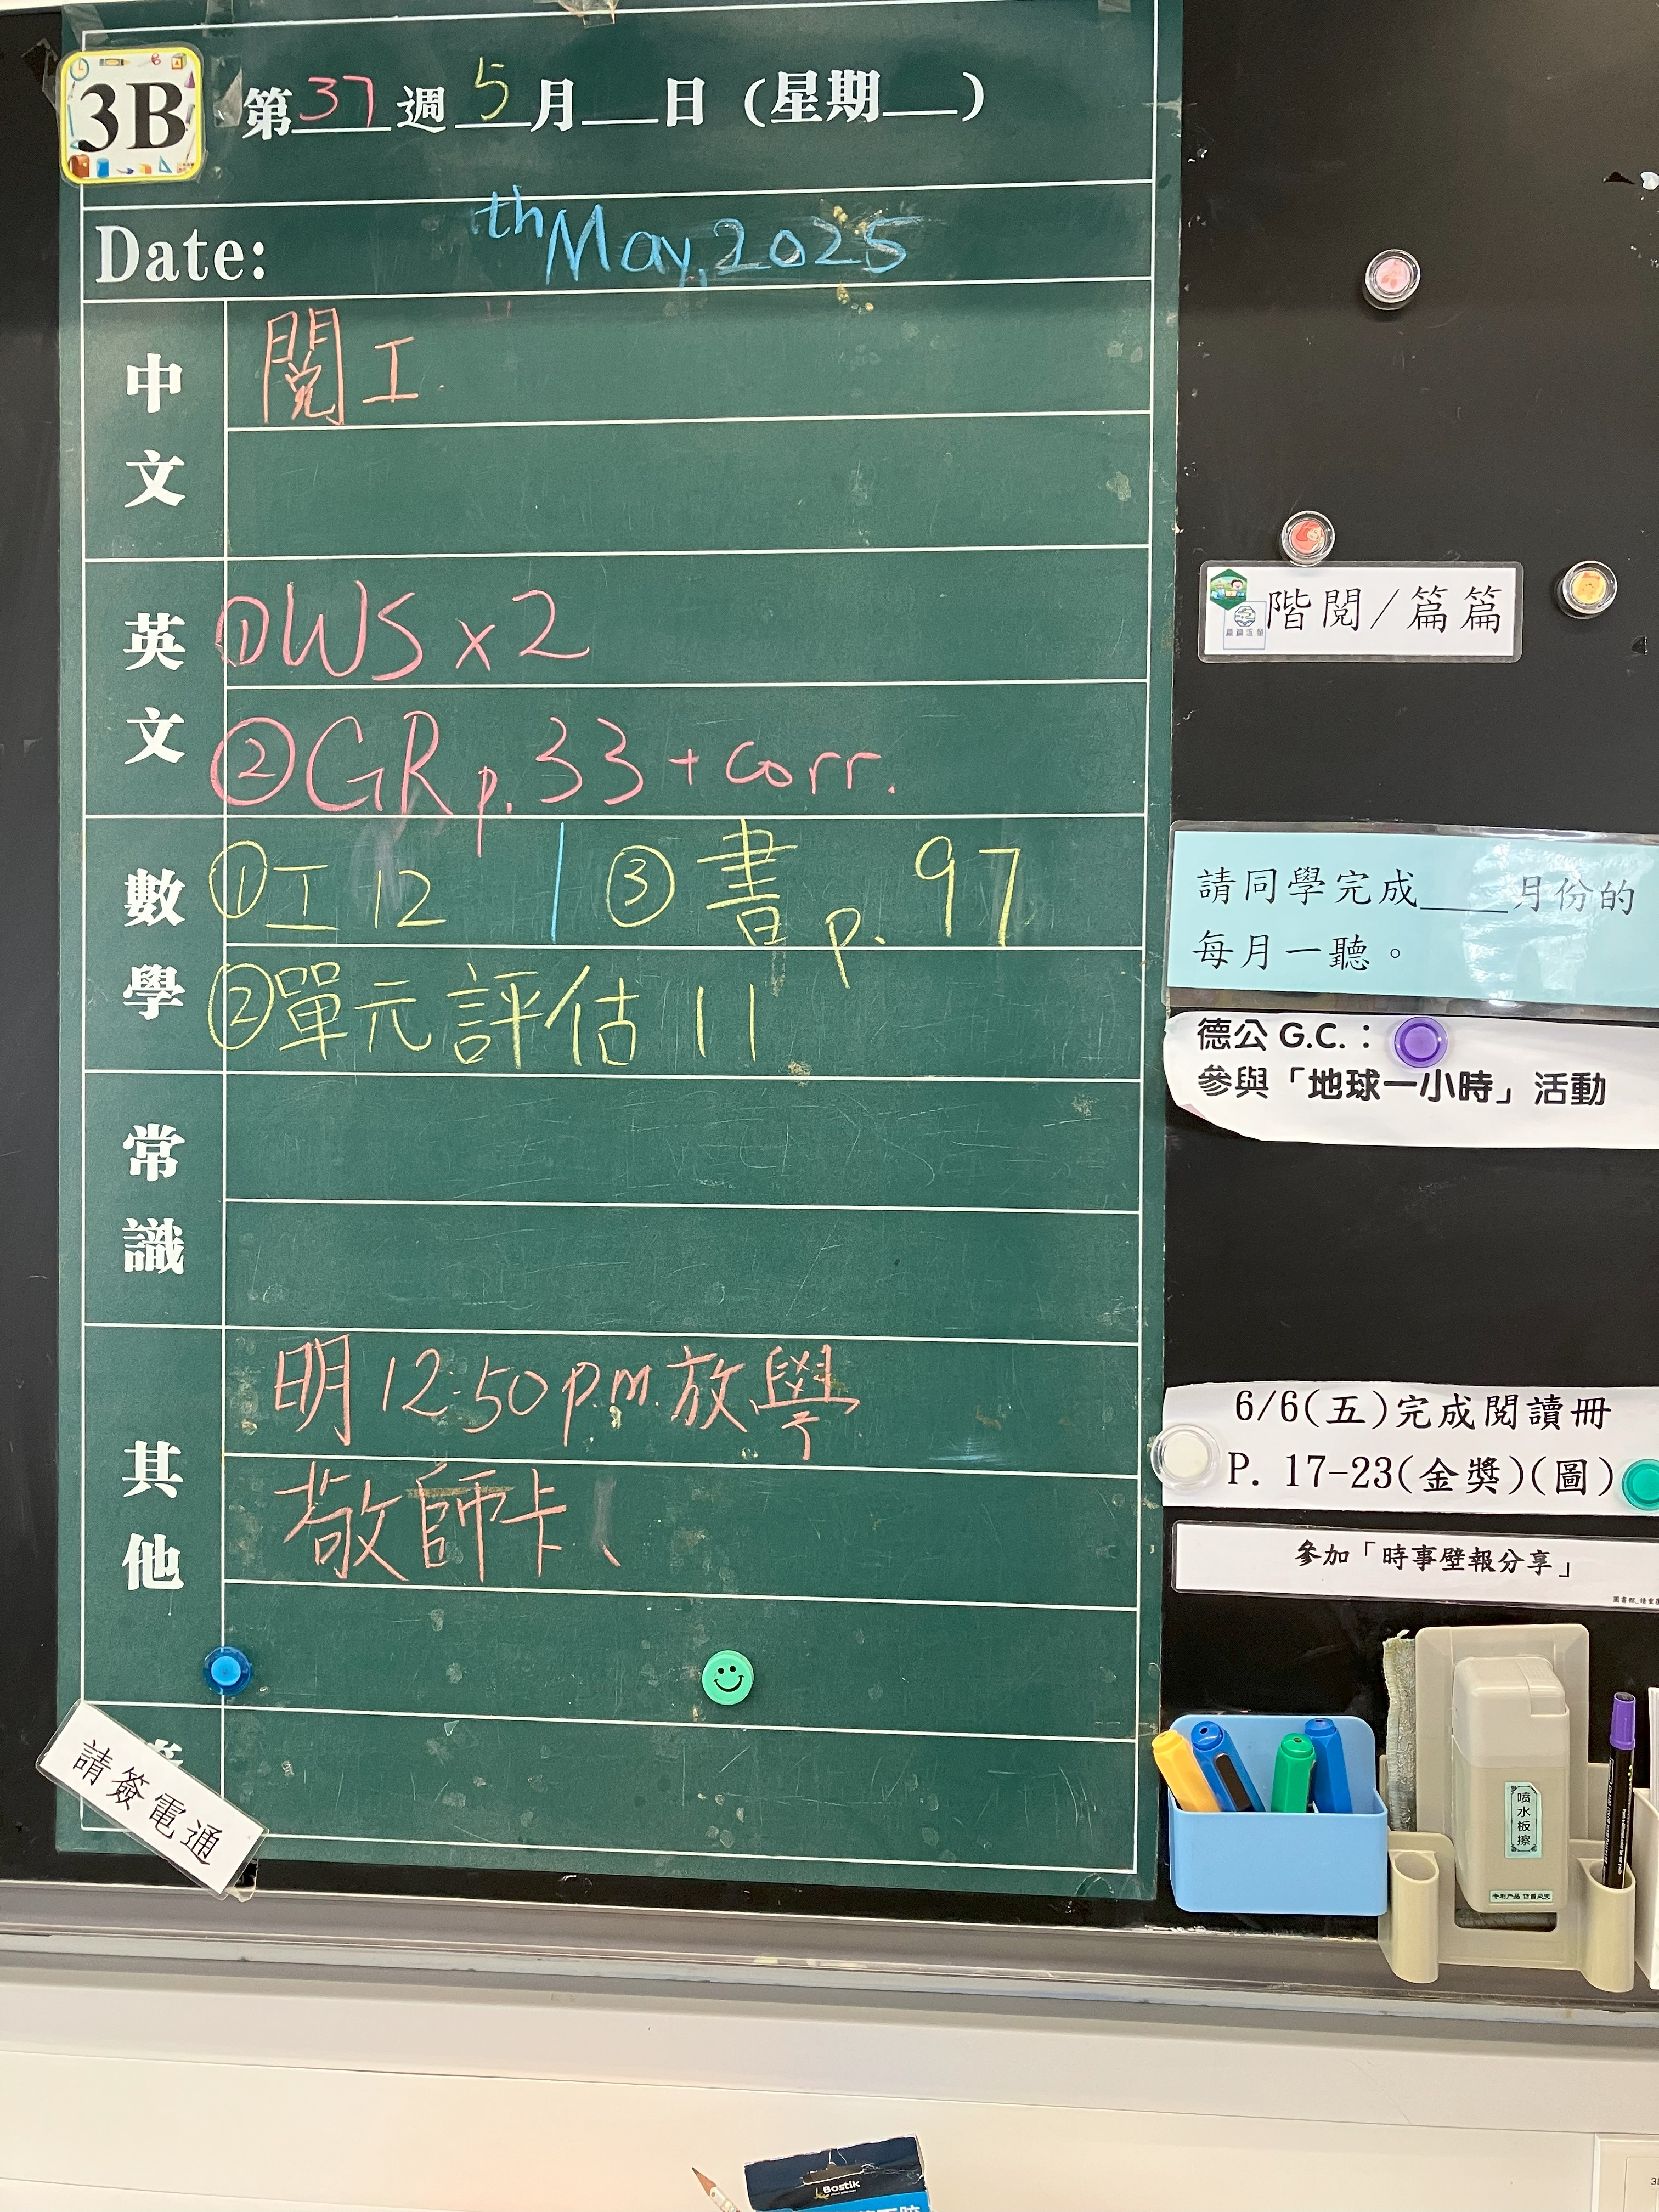 3B
第37週5月__日(星期__)
Date: th May, 2025
中文
閱工
英文
①WS x 2
②GR p.33 + corr.
數學
①工12 | ③書p.97
②單元評估11
常識
其他
明12:50p.m.放學
敬師卡
請簽電通
階閱/篇篇
請同學完成____月份的
每月一聽。
德公 G.C.:
參與「地球一小時」活動
6/6(五)完成閱讀冊
P. 17-23(金獎)(圖)
參加「時事壁報分享」
喷水板擦
专利产品 仿冒必究
Bostik